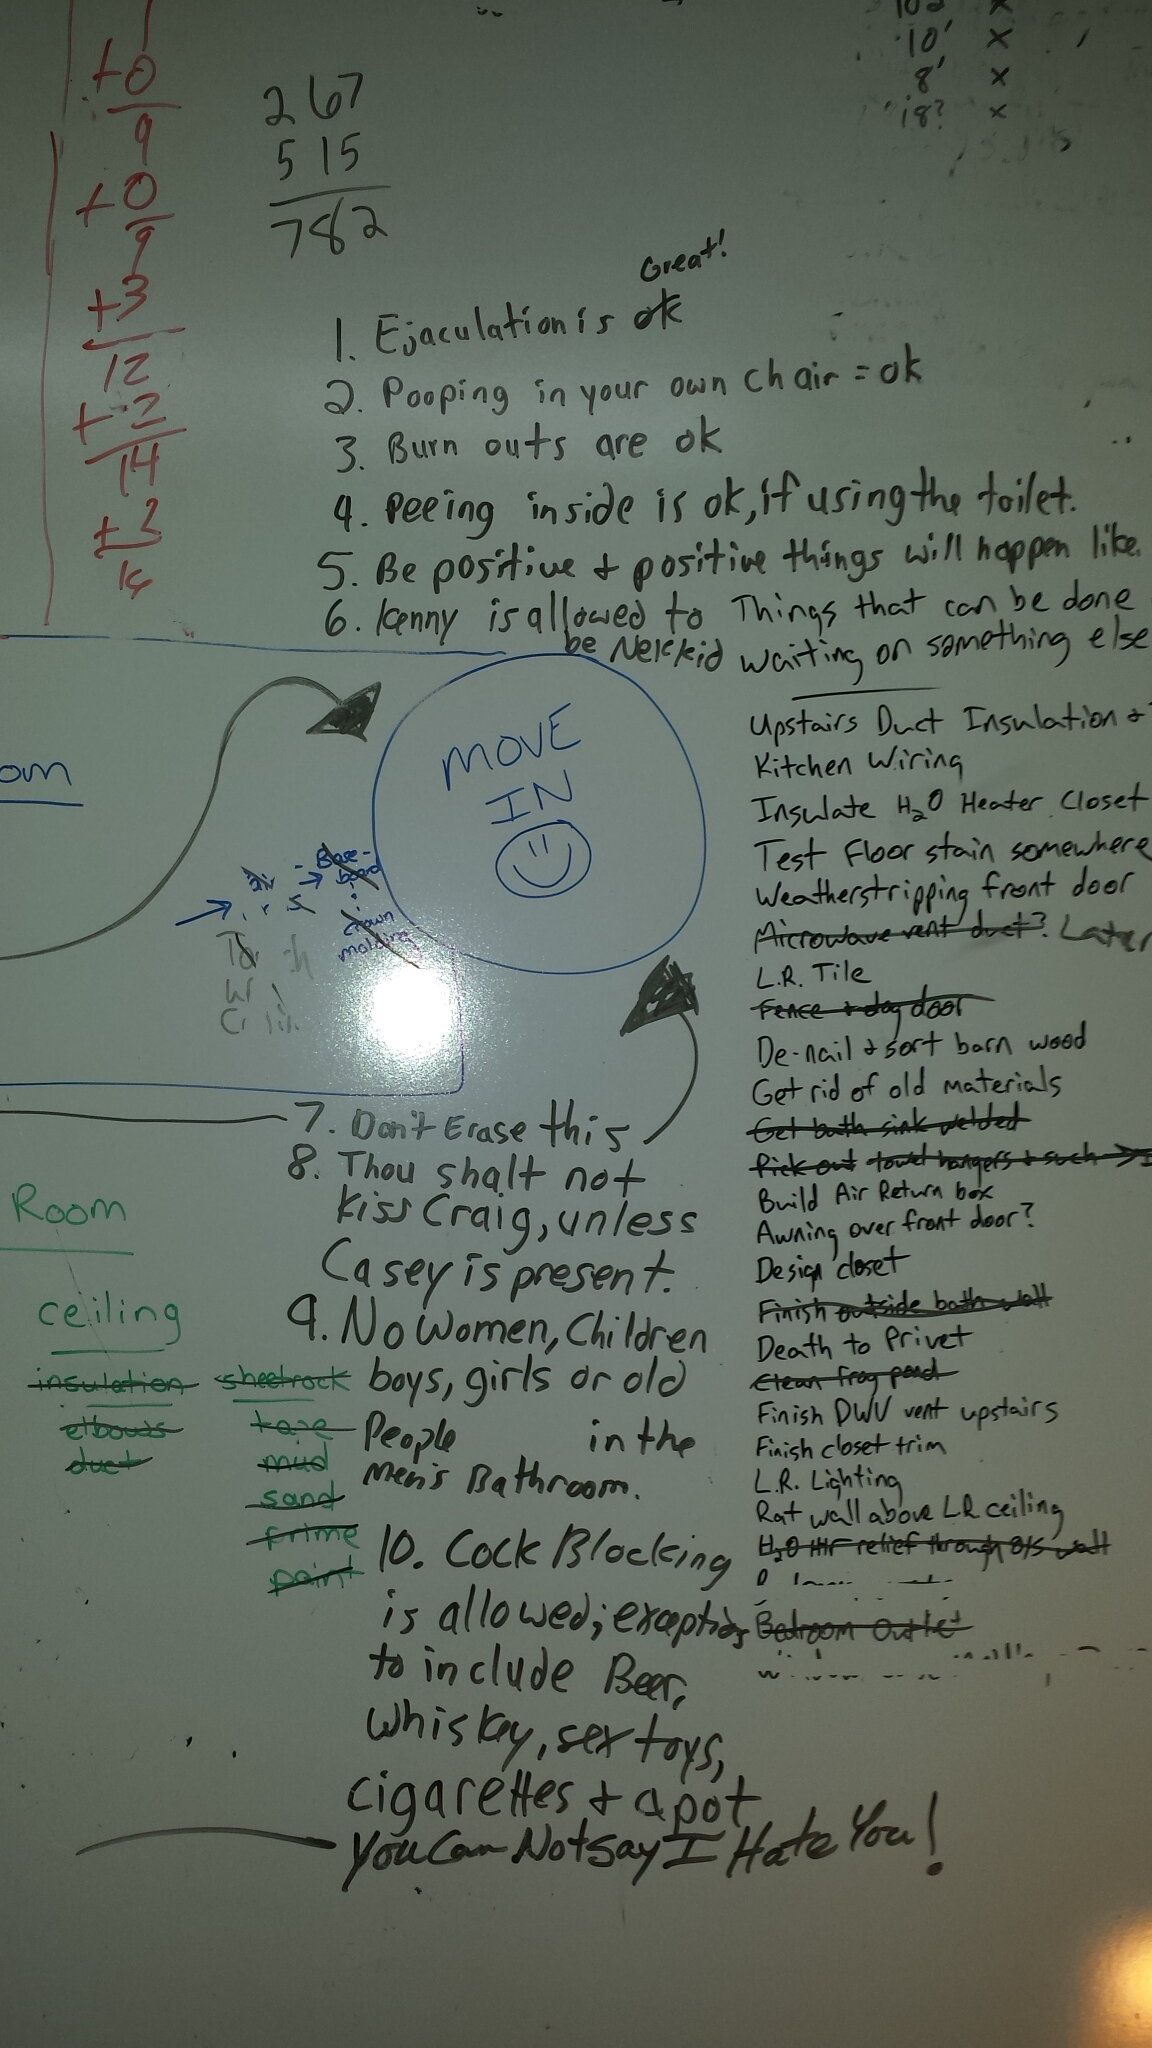 +0
9
+0
9
+3
12
+2
14
+2
16
267
515
782
10'
8'
18?
x
x
x
x
Great!
1. Ejaculation is ok
2. Pooping in your own chair = ok
3. Burn outs are ok
4. Peeing inside is ok, if using the toilet.
5. Be positive + positive things will happen like.
6. Kenny is allowed to
be Nekkid
Things that can be done
waiting on something else
Upstairs Duct Insulation +
Kitchen Wiring
Insulate H2O Heater Closet
Test Floor stain somewhere
Weatherstripping front door
Microwave vent duct? Later
L.R. Tile
Fence + dog door
De-nail + sort barn wood
Get rid of old materials
Get bath sink welded
Pick out towel hangers + such →
Build Air Return box
Awning over front door?
Design closet
Finish outside bath wall
Death to Privet
Clean frog pond
Finish DWV vent upstairs
Finish closet trim
L.R. Lighting
Rat wall above LR ceiling
H2O Htr relief through O/S wall
Bedroom Outlet
MOVE
IN
→ → Base-
board
crown
molding
7. Don't Erase this
8. Thou shalt not
kiss Craig, unless
Casey is present.
9. No Women, Children
boys, girls or old
People in the
Men's Bathroom.
10. Cock Blocking
is allowed; exceptions
to include Beer,
Whiskey, sex toys,
cigarettes + a pot
You Can Not say I Hate You!
om
Room
ceiling
insulation
elbows
duct
sheetrock
tape
mud
sand
prime
paint